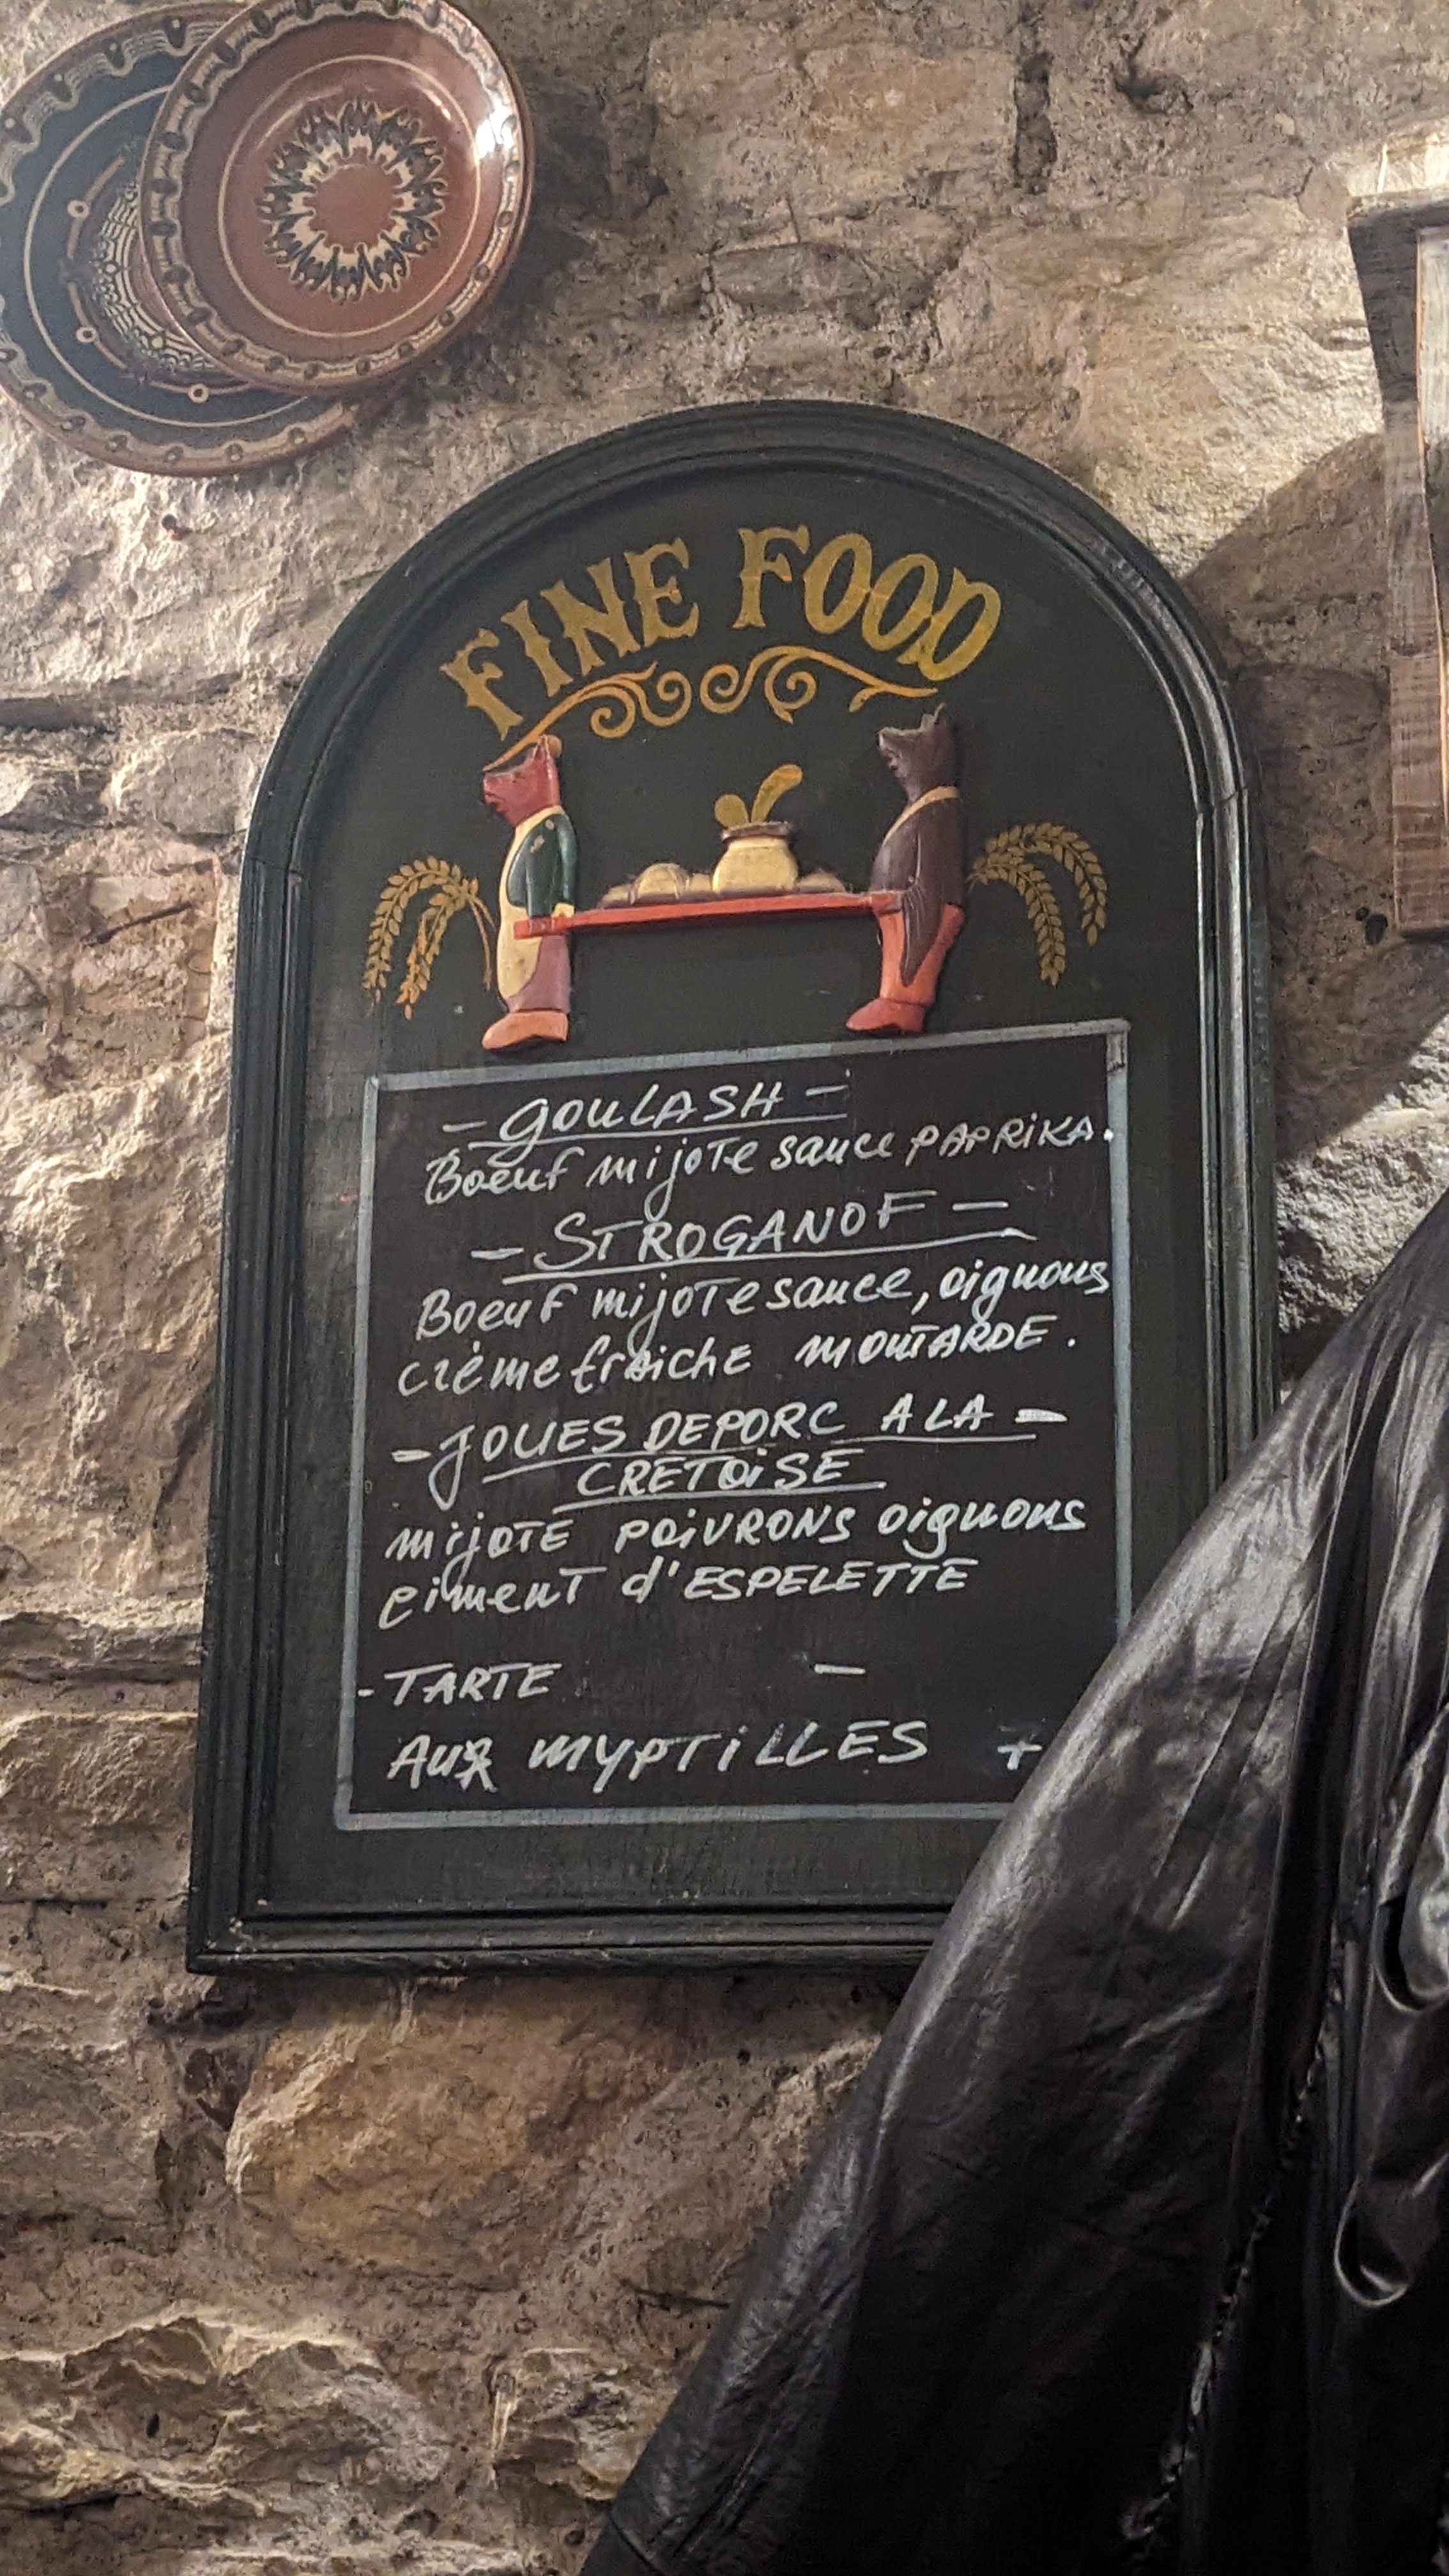 FINE FOOD
- GOULASH -
Boeuf mijoTe sauce PAPRiKA.
- STROGANOF -
Boeuf mijoTe sauce, oignons
crème fraiche mouTARDE.
- JOUES DE PORC A LA -
CRETOiSE
mijoTE POiVRONS oignons
pimenT d'ESPELETTE
- TARTE -
AUX MYPTiLLES